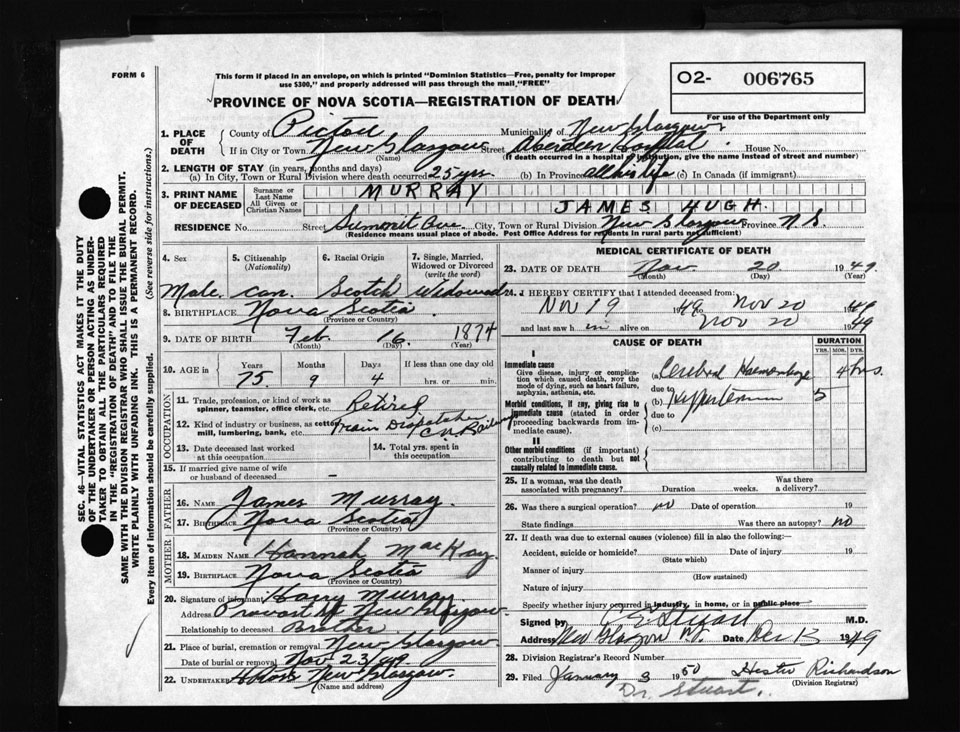 FORM 6
This form if placed in an envelope, on which is printed "Dominion Statistics—Free, penalty for improper
use $300," and properly addressed will pass through the mail "FREE"
O2- 006765
For use of the Department only
PROVINCE OF NOVA SCOTIA—REGISTRATION OF DEATH
1. PLACE OF DEATH County of Pictou Municipality of New Glasgow
If in City or Town New Glasgow (Name) Street Aberdeen Hospital House No.
(If death occurred in a hospital or institution, give the name instead of street and number)
2. LENGTH OF STAY (in years, months and days)
(a) In City, Town or Rural Division where death occurred 25 yrs. (b) In Province all his life (c) In Canada (if immigrant)
3. PRINT NAME OF DECEASED Surname or Last Name MURRAY
All Given or Christian Names JAMES HUGH.
RESIDENCE No. Street Summit Ave. City, Town or Rural Division New Glasgow Province N.S.
(Residence means usual place of abode. Post Office Address for residents in rural parts not sufficient)
4. Sex 5. Citizenship (Nationality) 6. Racial Origin 7. Single, Married, Widowed or Divorced (write the word)
Male. Can. Scotch Widowed
8. BIRTHPLACE Nova Scotia
(Province or Country)
9. DATE OF BIRTH Feb. 16. 1874
(Month) (Day) (Year)
10. AGE in Years Months Days If less than one day old
75. 9 4 hrs. or min.
OCCUPATION
11. Trade, profession, or kind of work as spinner, teamster, office clerk, etc. Retired
12. Kind of industry or business, as cotton mill, lumbering, bank, etc. Train Dispatcher C.N. Railway
13. Date deceased last worked at this occupation
14. Total yrs. spent in this occupation
15. If married give name of wife or husband of deceased –
FATHER
16. NAME James Murray.
17. BIRTHPLACE Nova Scotia
(Province or Country)
MOTHER
18. MAIDEN NAME Hannah MacKay
19. BIRTHPLACE Nova Scotia
(Province or Country)
20. Signature of informant Harry Murray.
Address Provost St New Glasgow
Relationship to deceased Brother
21. Place of burial, cremation or removal New Glasgow.
Date of burial or removal Nov. 23/49.
22. UNDERTAKER New Glasgow.
(Name and address)
MEDICAL CERTIFICATE OF DEATH
23. DATE OF DEATH Nov 20 1949
(Month) (Day) (Year)
24. I HEREBY CERTIFY that I attended deceased from:
Nov 19 1949 to Nov 20 1949
and last saw him alive on Nov 20 1949
CAUSE OF DEATH DURATION
YRS. MOS. DYS.
I
Immediate cause
Give disease, injury or complication which caused death, NOT the mode of dying, such as heart failure, asphyxia, asthenia, etc.
(a) Cerebral Haemorrhage 4 hrs.
due to
Morbid conditions, if any, giving rise to immediate cause (stated in order proceeding backwards from immediate cause).
(b) Hypertension 5
due to
(c)
II
Other morbid conditions (if important) contributing to death but not causally related to immediate cause.
25. If a woman, was the death associated with pregnancy? Duration weeks. Was there a delivery?
26. Was there a surgical operation? no Date of operation 19
State findings Was there an autopsy? no
27. If death was due to external causes (violence) fill in also the following:
Accident, suicide or homicide? Date of injury 19
(State which)
Manner of injury
(How sustained)
Nature of injury
Specify whether injury occurred in industry, in home, or in public place
Signed by Stuart M.D.
Address New Glasgow Date Dec 13 1949
28. Division Registrar's Record Number
29. Filed January 3 1950 Hester Richardson
(Division Registrar)
Dr. Stuart.
SEC. 46—VITAL STATISTICS ACT MAKES IT THE DUTY
OF THE UNDERTAKER OR PERSON ACTING AS UNDER-
TAKER TO OBTAIN ALL THE PARTICULARS REQUIRED
IN THE "REGISTRATION OF DEATH" AND TO FILE THE
SAME WITH THE DIVISION REGISTRAR WHO SHALL ISSUE THE BURIAL PERMIT.
WRITE PLAINLY WITH UNFADING INK. THIS IS A PERMANENT RECORD.
Every item of information should be carefully supplied. (See reverse side for instructions.)